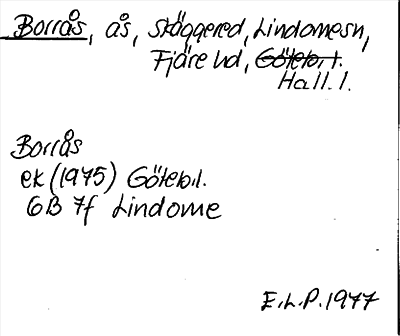 Borrås, ås, Skäggered, Lindomesn,
Fjäre hd, Götebo.l.
Hall.l.
Borrås
ek (1975) Göteb.l.
GB 7f Lindome
E.L.P. 1977